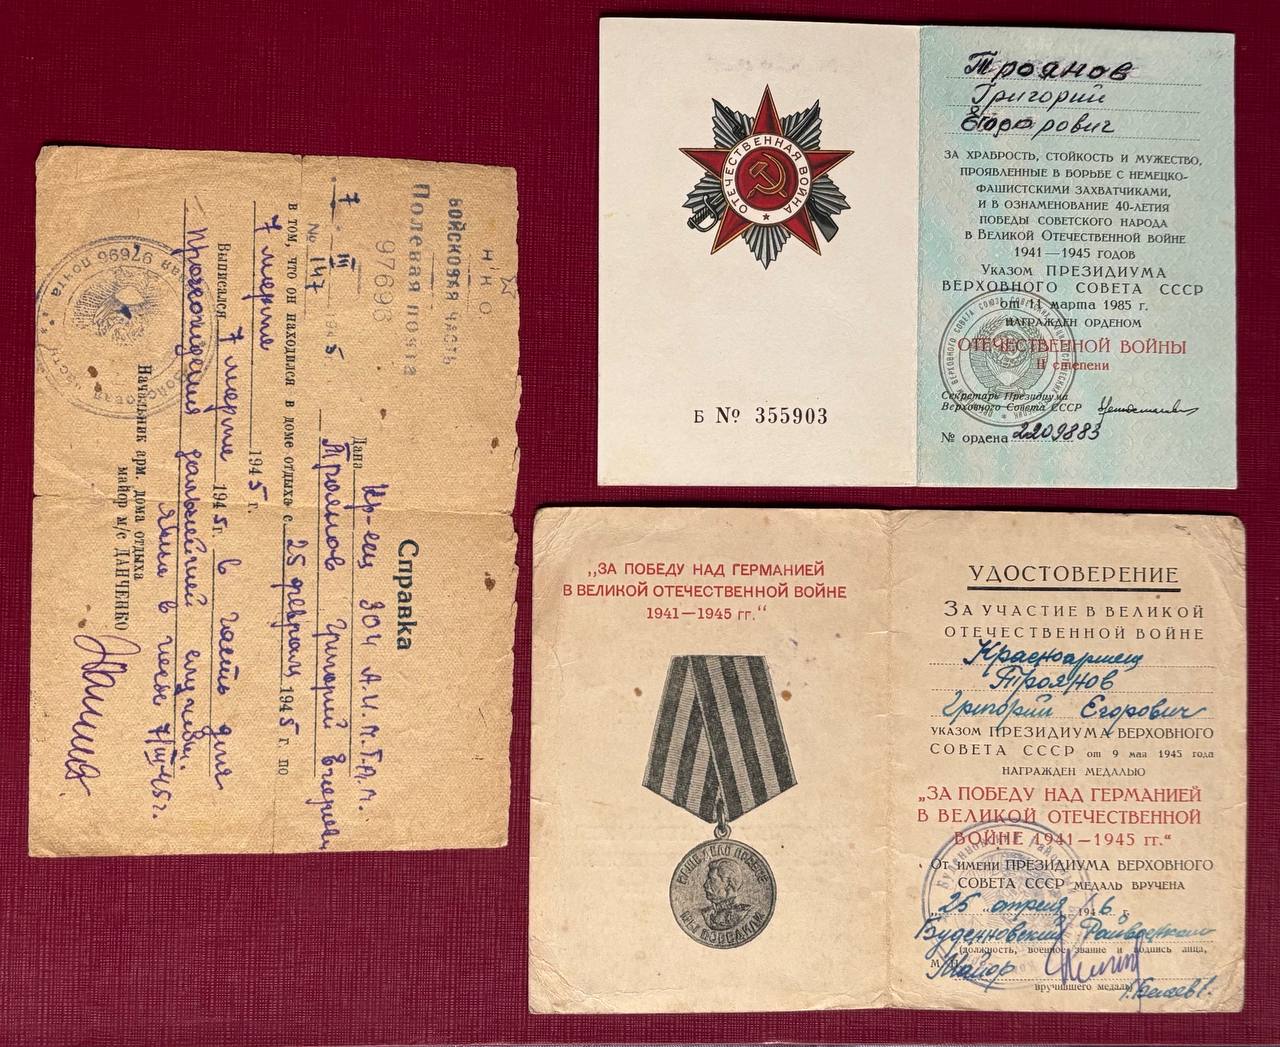 НКО
ВОЙСКОВАЯ ЧАСТЬ
Полевая почта
97696
7 III 1945
№ 147
Справка
Дана Кр-ец 304 А.И.М.Т.Д.М.
Троянов Григорий
в том, что он находился в доме отдыха с 25 февраля 1945 г. по
7 марта 1945 г.
Выписался 7 марта 1945 г. в часть для
прохождения дальнейшей службы.
Явка в часть 7/III-45 г.
Начальник арм. дома отдыха
майор м/с ДАНЧЕНКО
ОТЕЧЕСТВЕННАЯ ВОЙНА
Б № 355903
Троянов
Григорий
Егорович
ЗА ХРАБРОСТЬ, СТОЙКОСТЬ И МУЖЕСТВО,
ПРОЯВЛЕННЫЕ В БОРЬБЕ С НЕМЕЦКО-
ФАШИСТСКИМИ ЗАХВАТЧИКАМИ,
И В ОЗНАМЕНОВАНИЕ 40-ЛЕТИЯ
ПОБЕДЫ СОВЕТСКОГО НАРОДА
В ВЕЛИКОЙ ОТЕЧЕСТВЕННОЙ ВОЙНЕ
1941—1945 ГОДОВ
УКАЗОМ ПРЕЗИДИУМА
ВЕРХОВНОГО СОВЕТА СССР
от 11 марта 1985 г.
НАГРАЖДЕН ОРДЕНОМ
ОТЕЧЕСТВЕННОЙ ВОЙНЫ
II степени
Секретарь Президиума
Верховного Совета СССР
№ ордена 2209883
„ЗА ПОБЕДУ НАД ГЕРМАНИЕЙ
В ВЕЛИКОЙ ОТЕЧЕСТВЕННОЙ ВОЙНЕ
1941—1945 гг.“
НАШЕ ДЕЛО ПРАВОЕ
МЫ ПОБЕДИЛИ
УДОСТОВЕРЕНИЕ
ЗА УЧАСТИЕ В ВЕЛИКОЙ
ОТЕЧЕСТВЕННОЙ ВОЙНЕ
Красноармеец
Троянов
Григорий Егорович
УКАЗОМ ПРЕЗИДИУМА ВЕРХОВНОГО
СОВЕТА СССР от 9 мая 1945 года
НАГРАЖДЕН МЕДАЛЬЮ
„ЗА ПОБЕДУ НАД ГЕРМАНИЕЙ
В ВЕЛИКОЙ ОТЕЧЕСТВЕННОЙ
ВОЙНЕ 1941—1945 гг.“
От имени ПРЕЗИДИУМА ВЕРХОВНОГО
СОВЕТА СССР МЕДАЛЬ ВРУЧЕНА
„25 „ апреля 1946 г.
Буденновский Райвоенком
(должность, военное звание и подпись лица,
М.П. Майор
вручившего медаль)